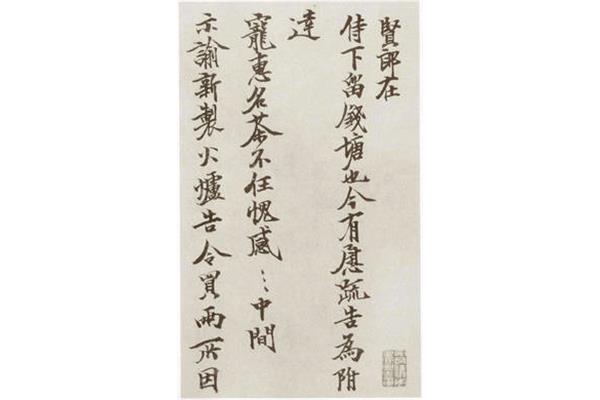 賢郎在
侍下留錢塘也今有慰疏告為附
達
寵惠名茶不任愧感〻中間
示諭新製火爐告令買兩所因